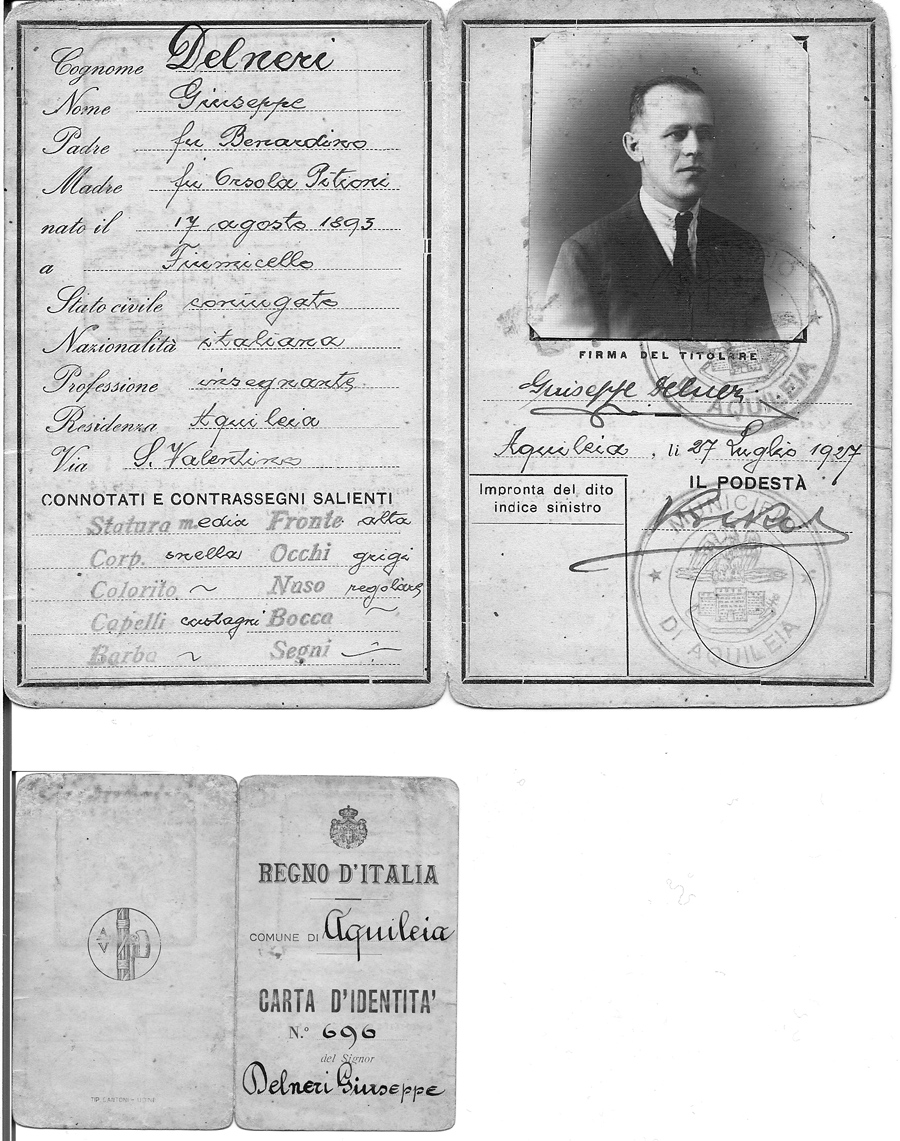 Cognome Delneri
Nome Giuseppe
Padre fu Benardino
Madre fu Orsola Pitioni
nato il 17 agosto 1893
a Fiumicello
Stato civile coniugato
Nazionalità italiana
Professione insegnante
Residenza Aquileia
Via S. Valentino
CONNOTATI E CONTRASSEGNI SALIENTI
Statura media Fronte alta
Corp. snella Occhi grigi
Colorito ~ Naso regolare
Capelli castagni Bocca ~
Barba ~ Segni ~
AQUILEIA
FIRMA DEL TITOLARE
Giuseppe Delneri
Aquileia, li 27 Luglio 1927
IL PODESTÀ
Impronta del dito
indice sinistro
MUNICIPIO
DI AQUILEIA
REGNO D'ITALIA
COMUNE DI Aquileia
CARTA D'IDENTITA'
N.° 696
del Signor
Delneri Giuseppe
A
V